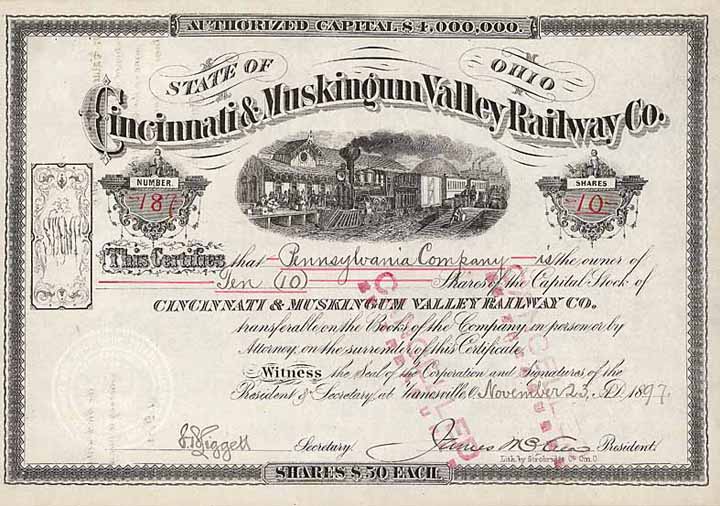 AUTHORIZED CAPITAL $4,000,000.
STATE OF OHIO
Cincinnati & Muskingum Valley Railway Co.
NUMBER
187
SHARES
10
This Certifies that Pennsylvania Company is the owner of
Ten (10) Shares of the Capital Stock of
CINCINNATI & MUSKINGUM VALLEY RAILWAY CO.
transferable on the Books of the Company in person or by
Attorney, on the surrender of this Certificate.
Witness the Seal of the Corporation and Signatures of the
President & Secretary, at Zanesville, O. November 23, A.D. 1897.
CANCELLED
CANCELLED
Secretary. James President.
Lith. by Strobridge Co. Cin. O.
SHARES $50 EACH.